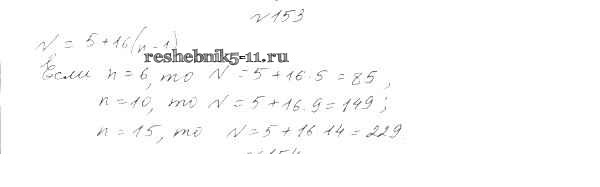 №153
N = 5+16(n-1)
reshebnik5-11.ru
Если n = 6, то N = 5+16·5 = 85,
n = 10, то N = 5+16·9 = 149;
n = 15, то N = 5+16 14 = 229